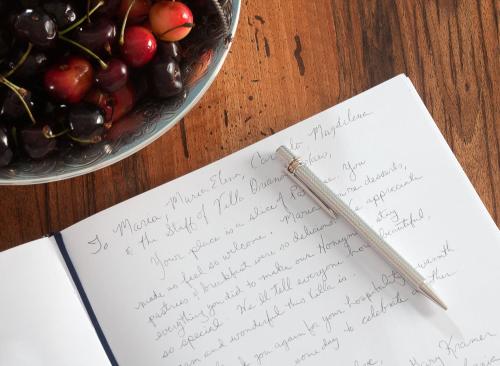 To Maria, Maria Elena, Carlo Magdelena
& the Staff of Villa
Your place is a slice of You
made us feel so welcome. Maria desserts,
pastries & breakfast were so delicious. We appreciate
everything you did to make our Honeymoon stay
so special. We'll tell everyone how beautiful,
and wonderful this Villa is.
you again for your hospitality warmth
some day to celebrate
Mary Kramer